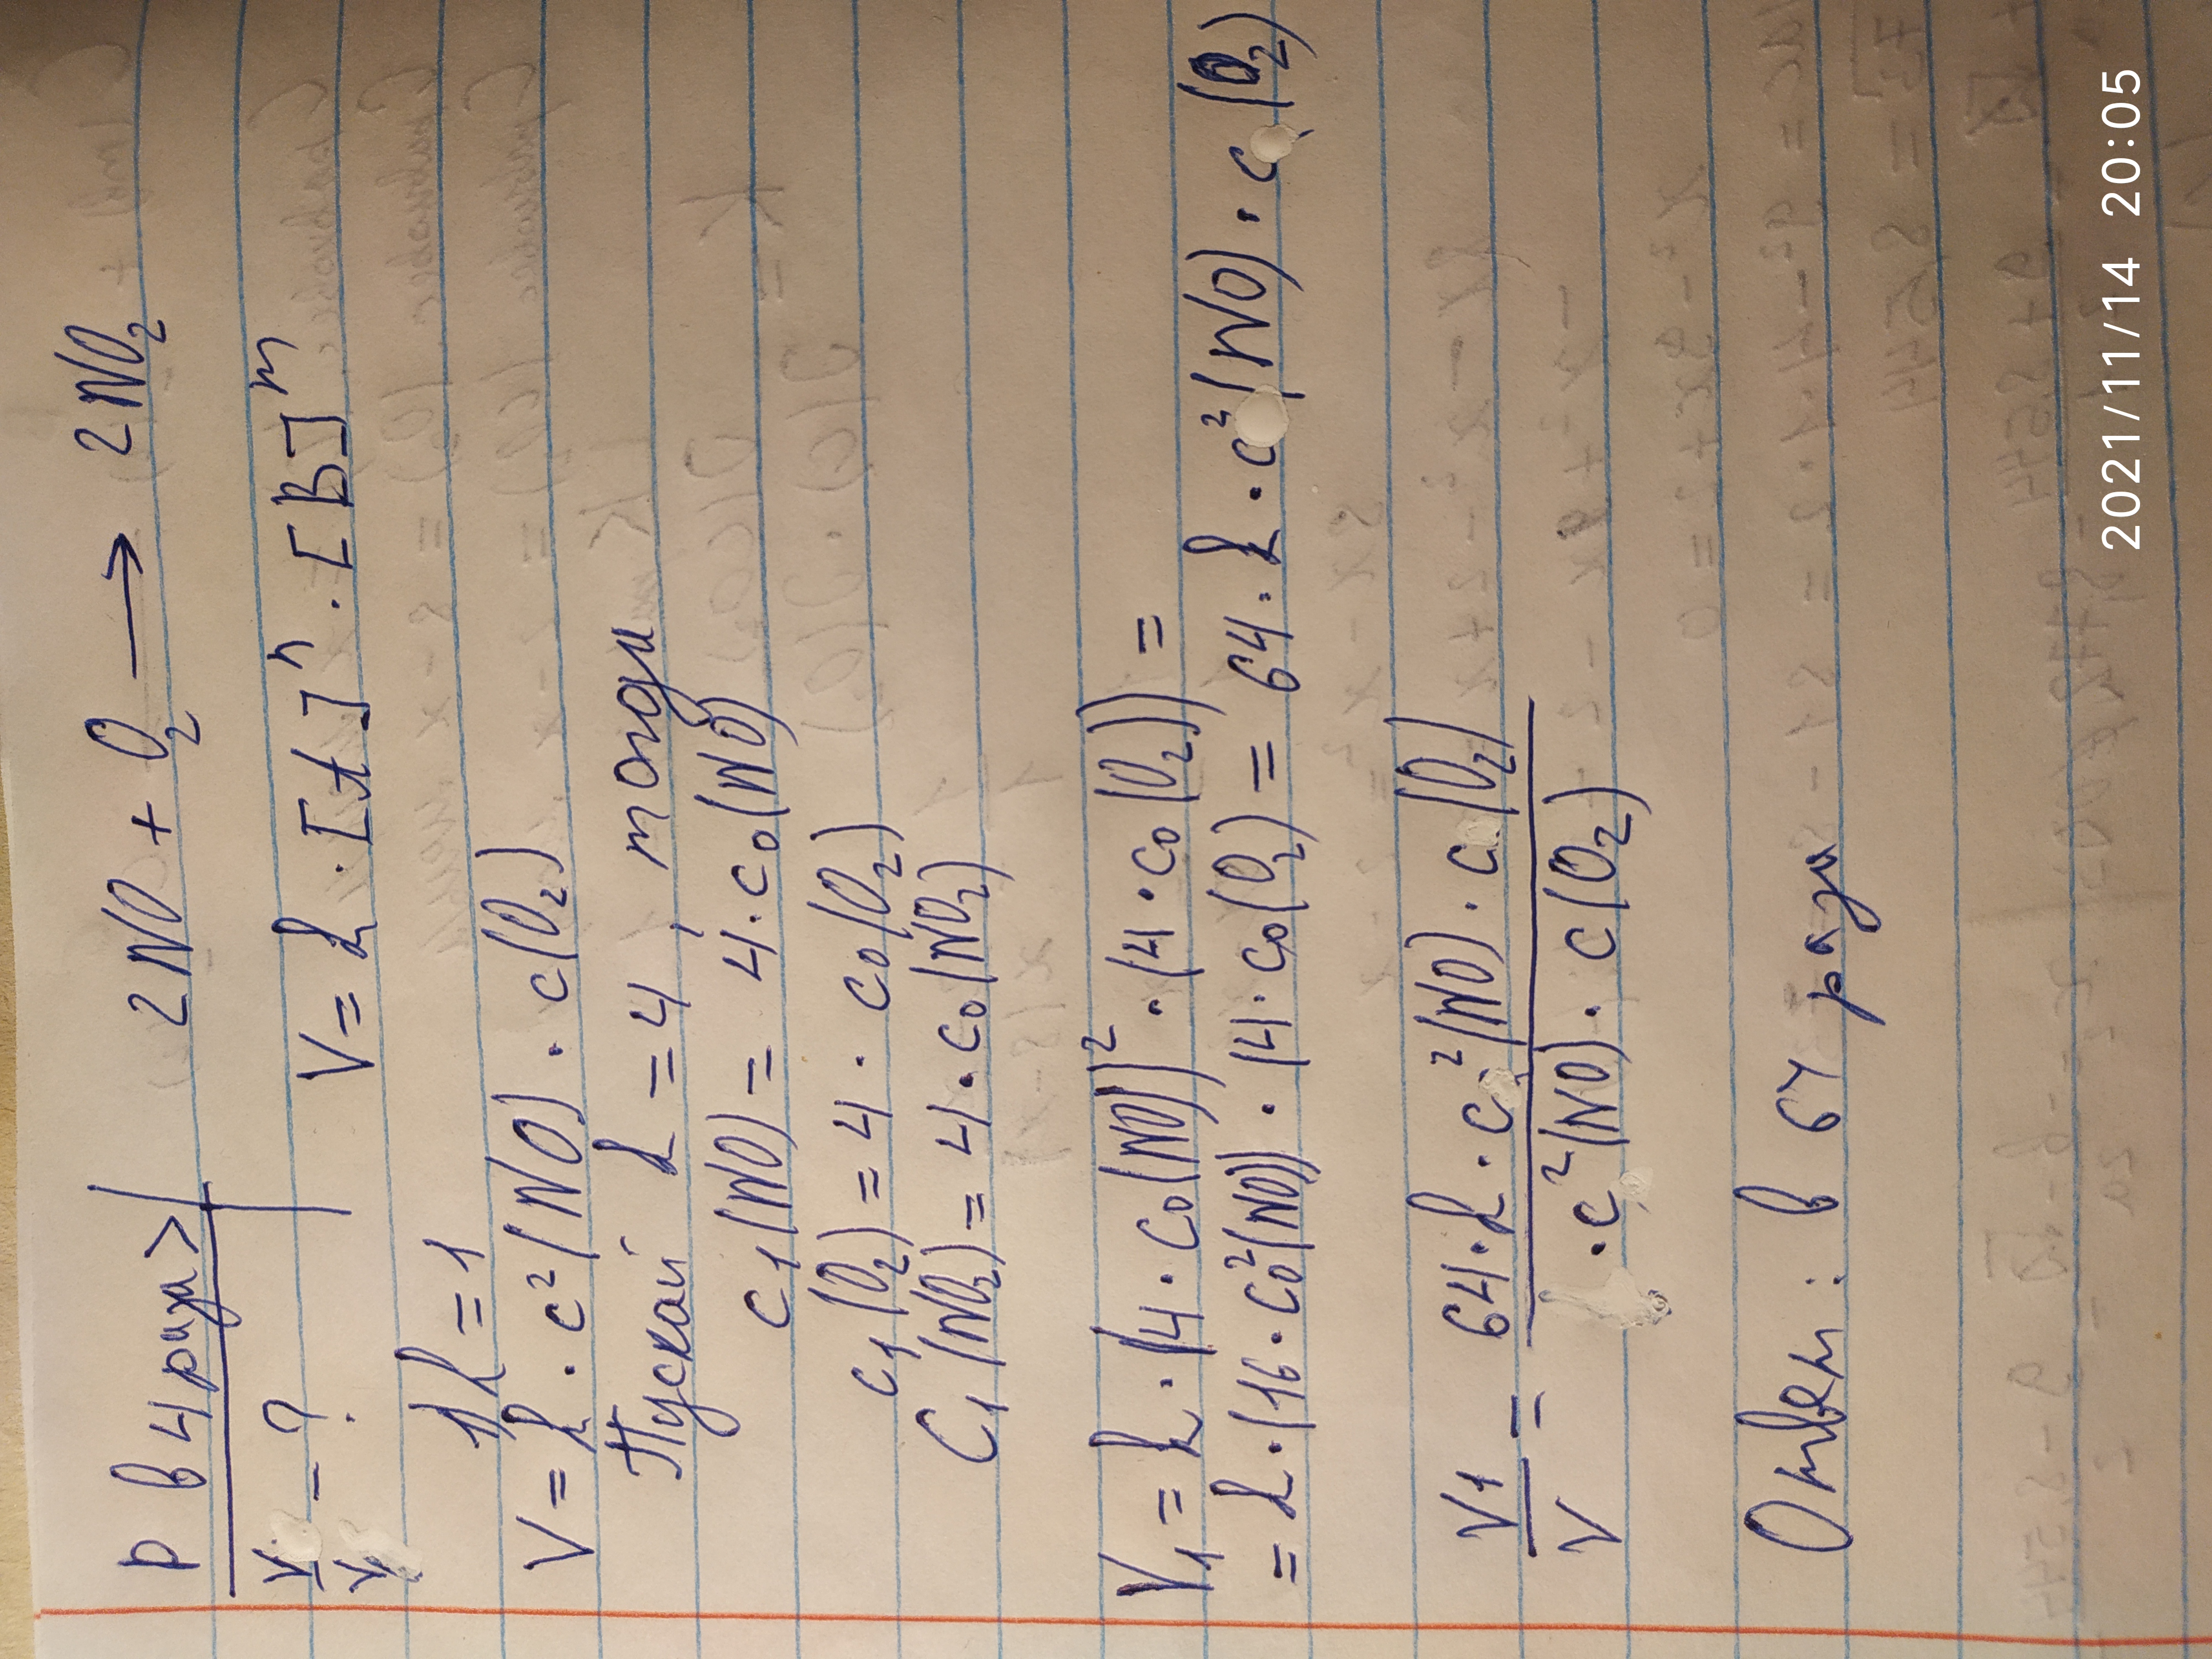 р в 4 рази > 2NO + O₂ → 2NO₂
V₁/V - ? V = k · [A]ⁿ · [B]ᵐ
1) k = 1
V = k · c²(NO) · c(O₂)
Пускай k = 4, тогди
c₁(NO) = 4 · c₀(NO)
c₁(O₂) = 4 · c₀(O₂)
C₁(NO₂) = 4 · c₀(NO₂)
V₁ = k · (4 · c₀(NO))² · (4 · c₀(O₂)) =
= k · (16 · c₀²(NO)) · (4 · c₀(O₂) = 64 · k · c²(NO) · c(O₂)
V₁/V = 64 · k · c²(NO) · c(O₂) / · c²(NO) · c(O₂)
Ответ: в 64 рази
2021/11/14 20:05